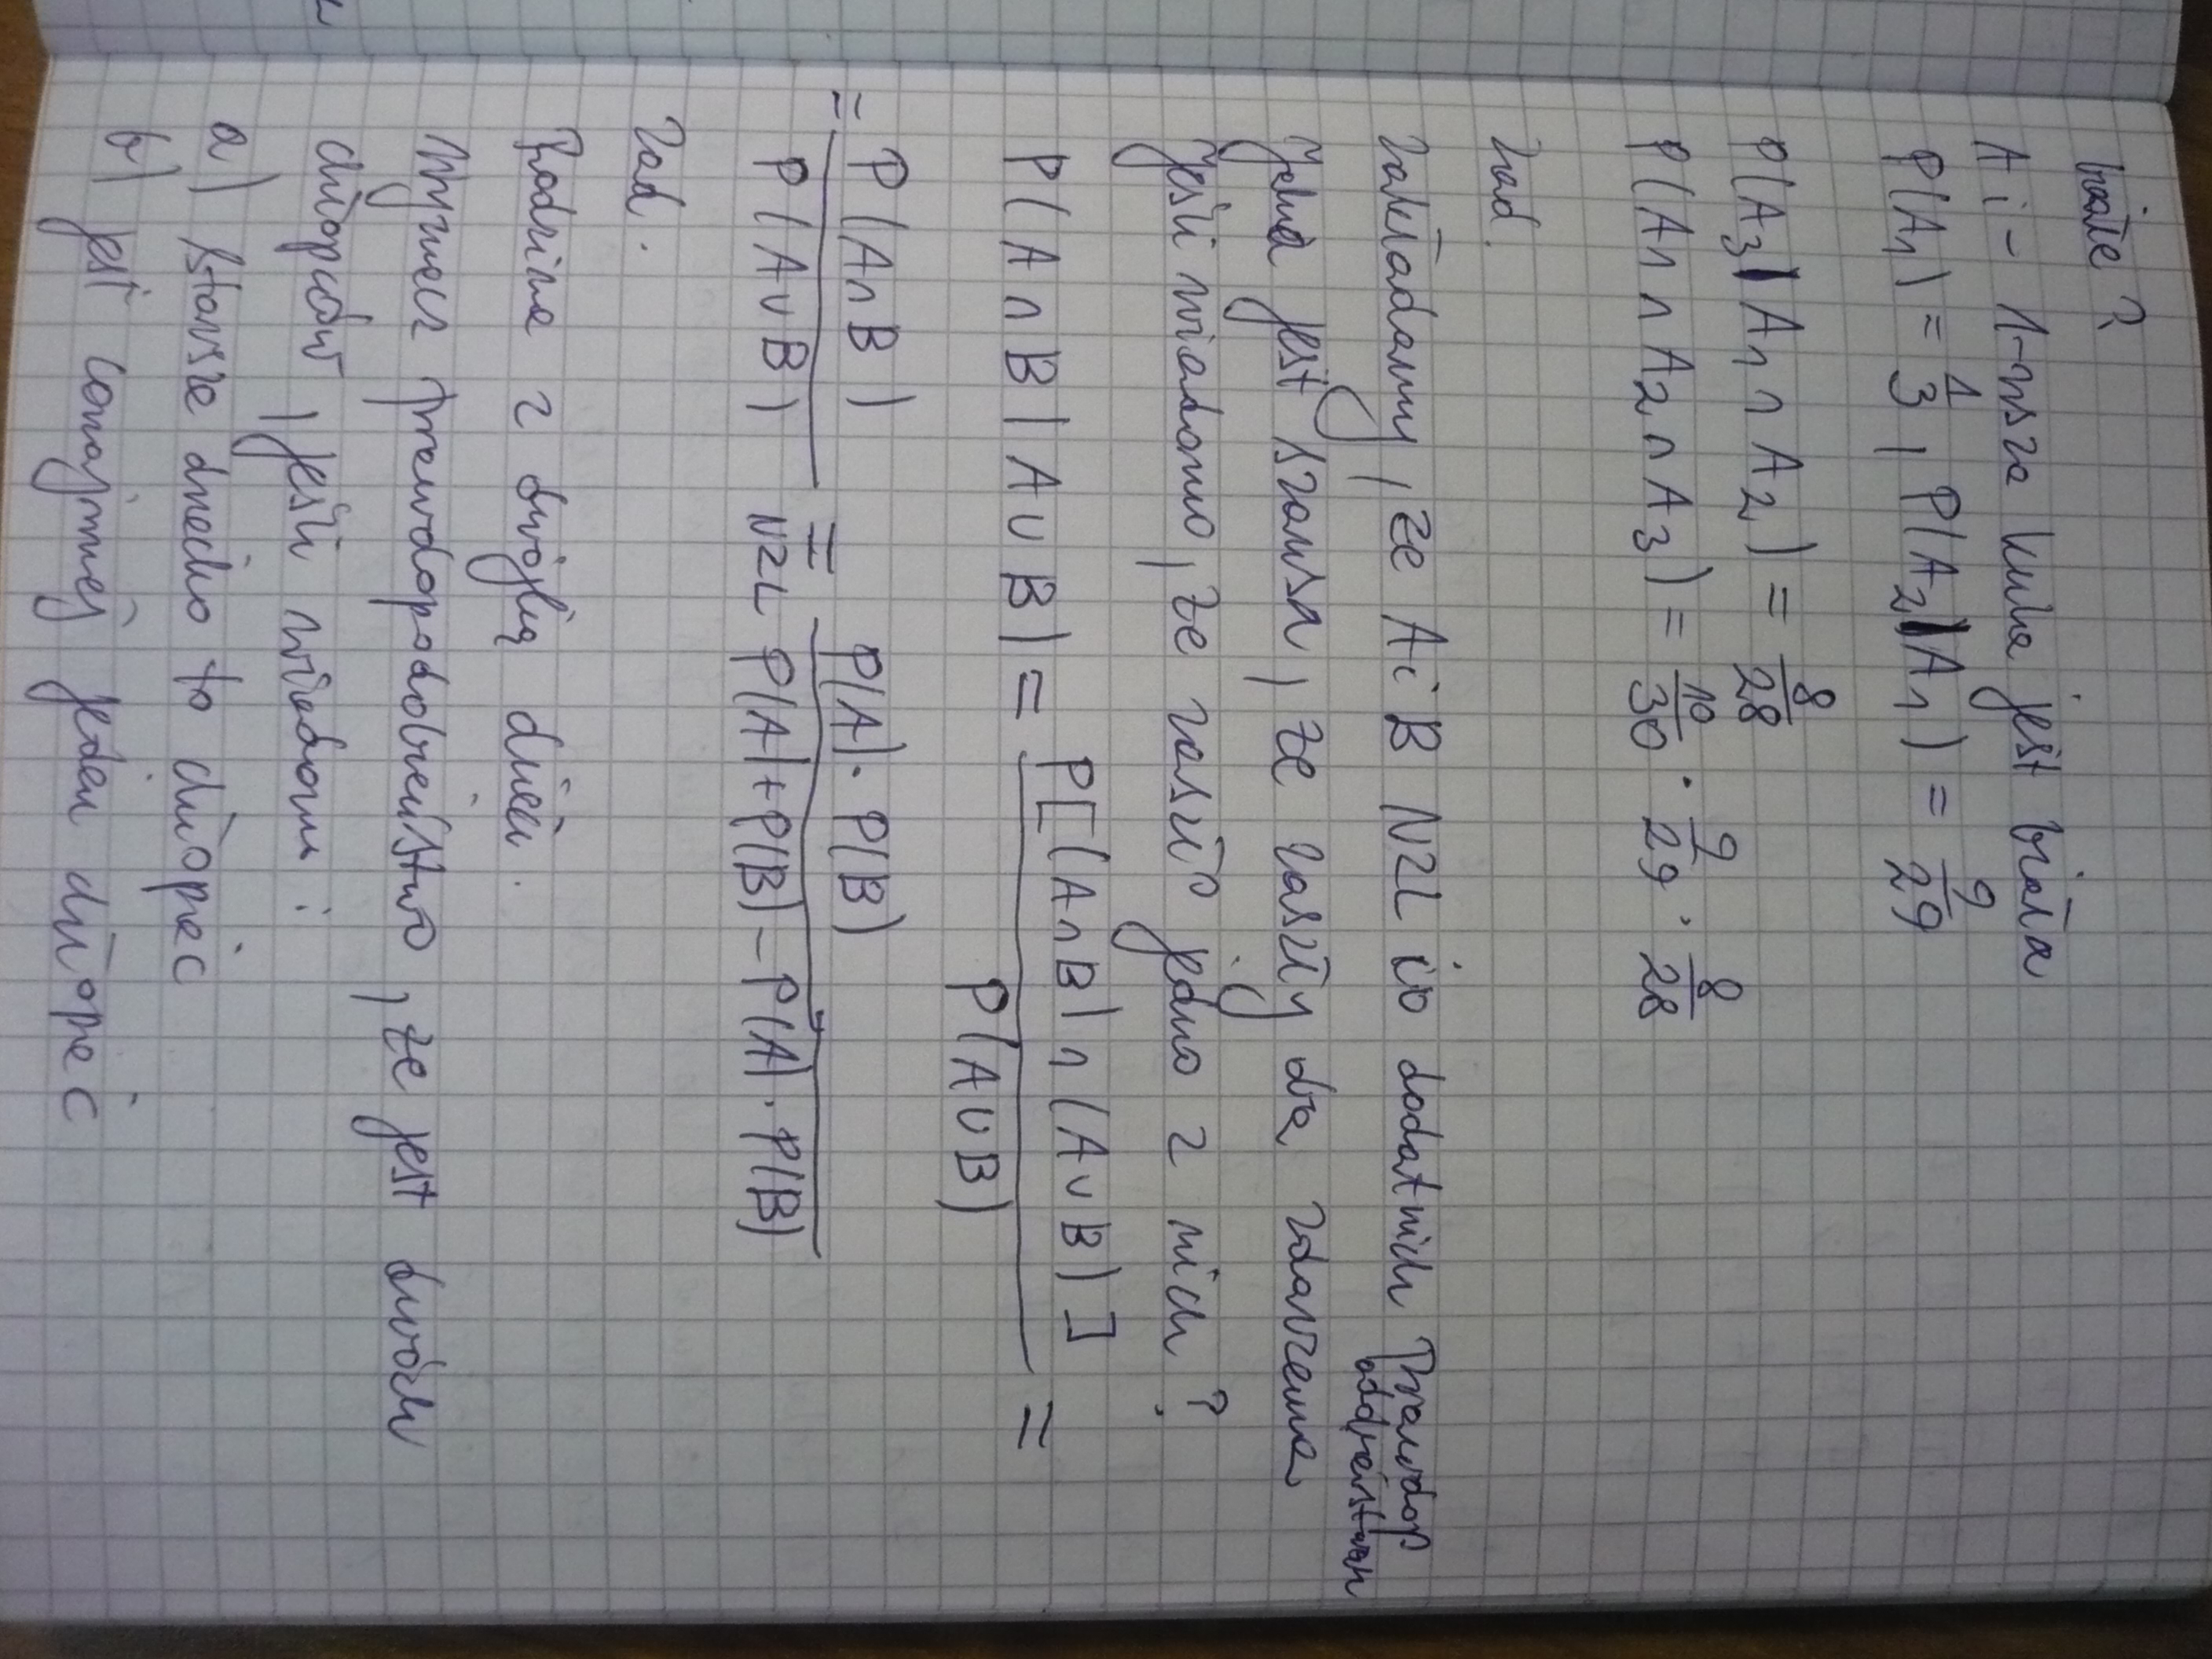 białe?
Ai - i-ta kula jest biała
P(A1) = 1/3, P(A2|A1) = 9/29
P(A3|A1∩A2) = 8/28
P(A1∩A2∩A3) = 10/30 · 9/29 · 8/28
Zad.
Zakładamy, że A i B NZL i o dodatnich prawdop
odobieństwach
Jaka jest szansa, że zaszły dwa zdarzenia
jeśli wiadomo, że zaszło jedno z nich?
P(A∩B|A∪B) = P[(A∩B)∩(A∪B)] / P(A∪B) =
= P(A∩B) / P(A∪B) = NZL P(A)·P(B) / P(A)+P(B)-P(A)·P(B)
Zad.
Rodzina z dwójką dzieci.
Wyznacz prawdopodobieństwo, że jest dwóch
chłopców, jeśli wiadomo:
a) starsze dziecko to chłopiec
b) jest conajmniej jeden chłopiec